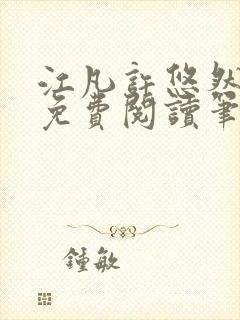 江凡許悠然
免費閱讀筆
鍾敏